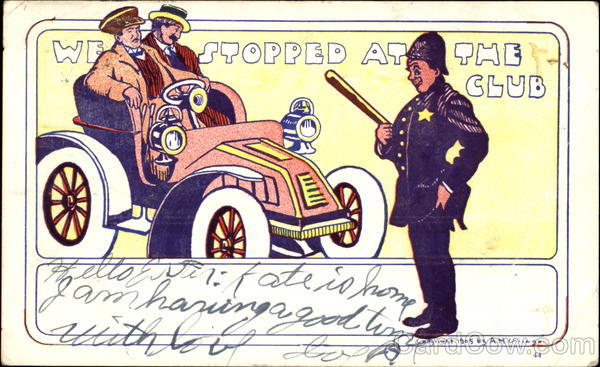 WE STOPPED AT THE
CLUB
Hello Kate is home
I am having a good time
with love
COPYRIGHT 1905 BY
44
CardCow.com